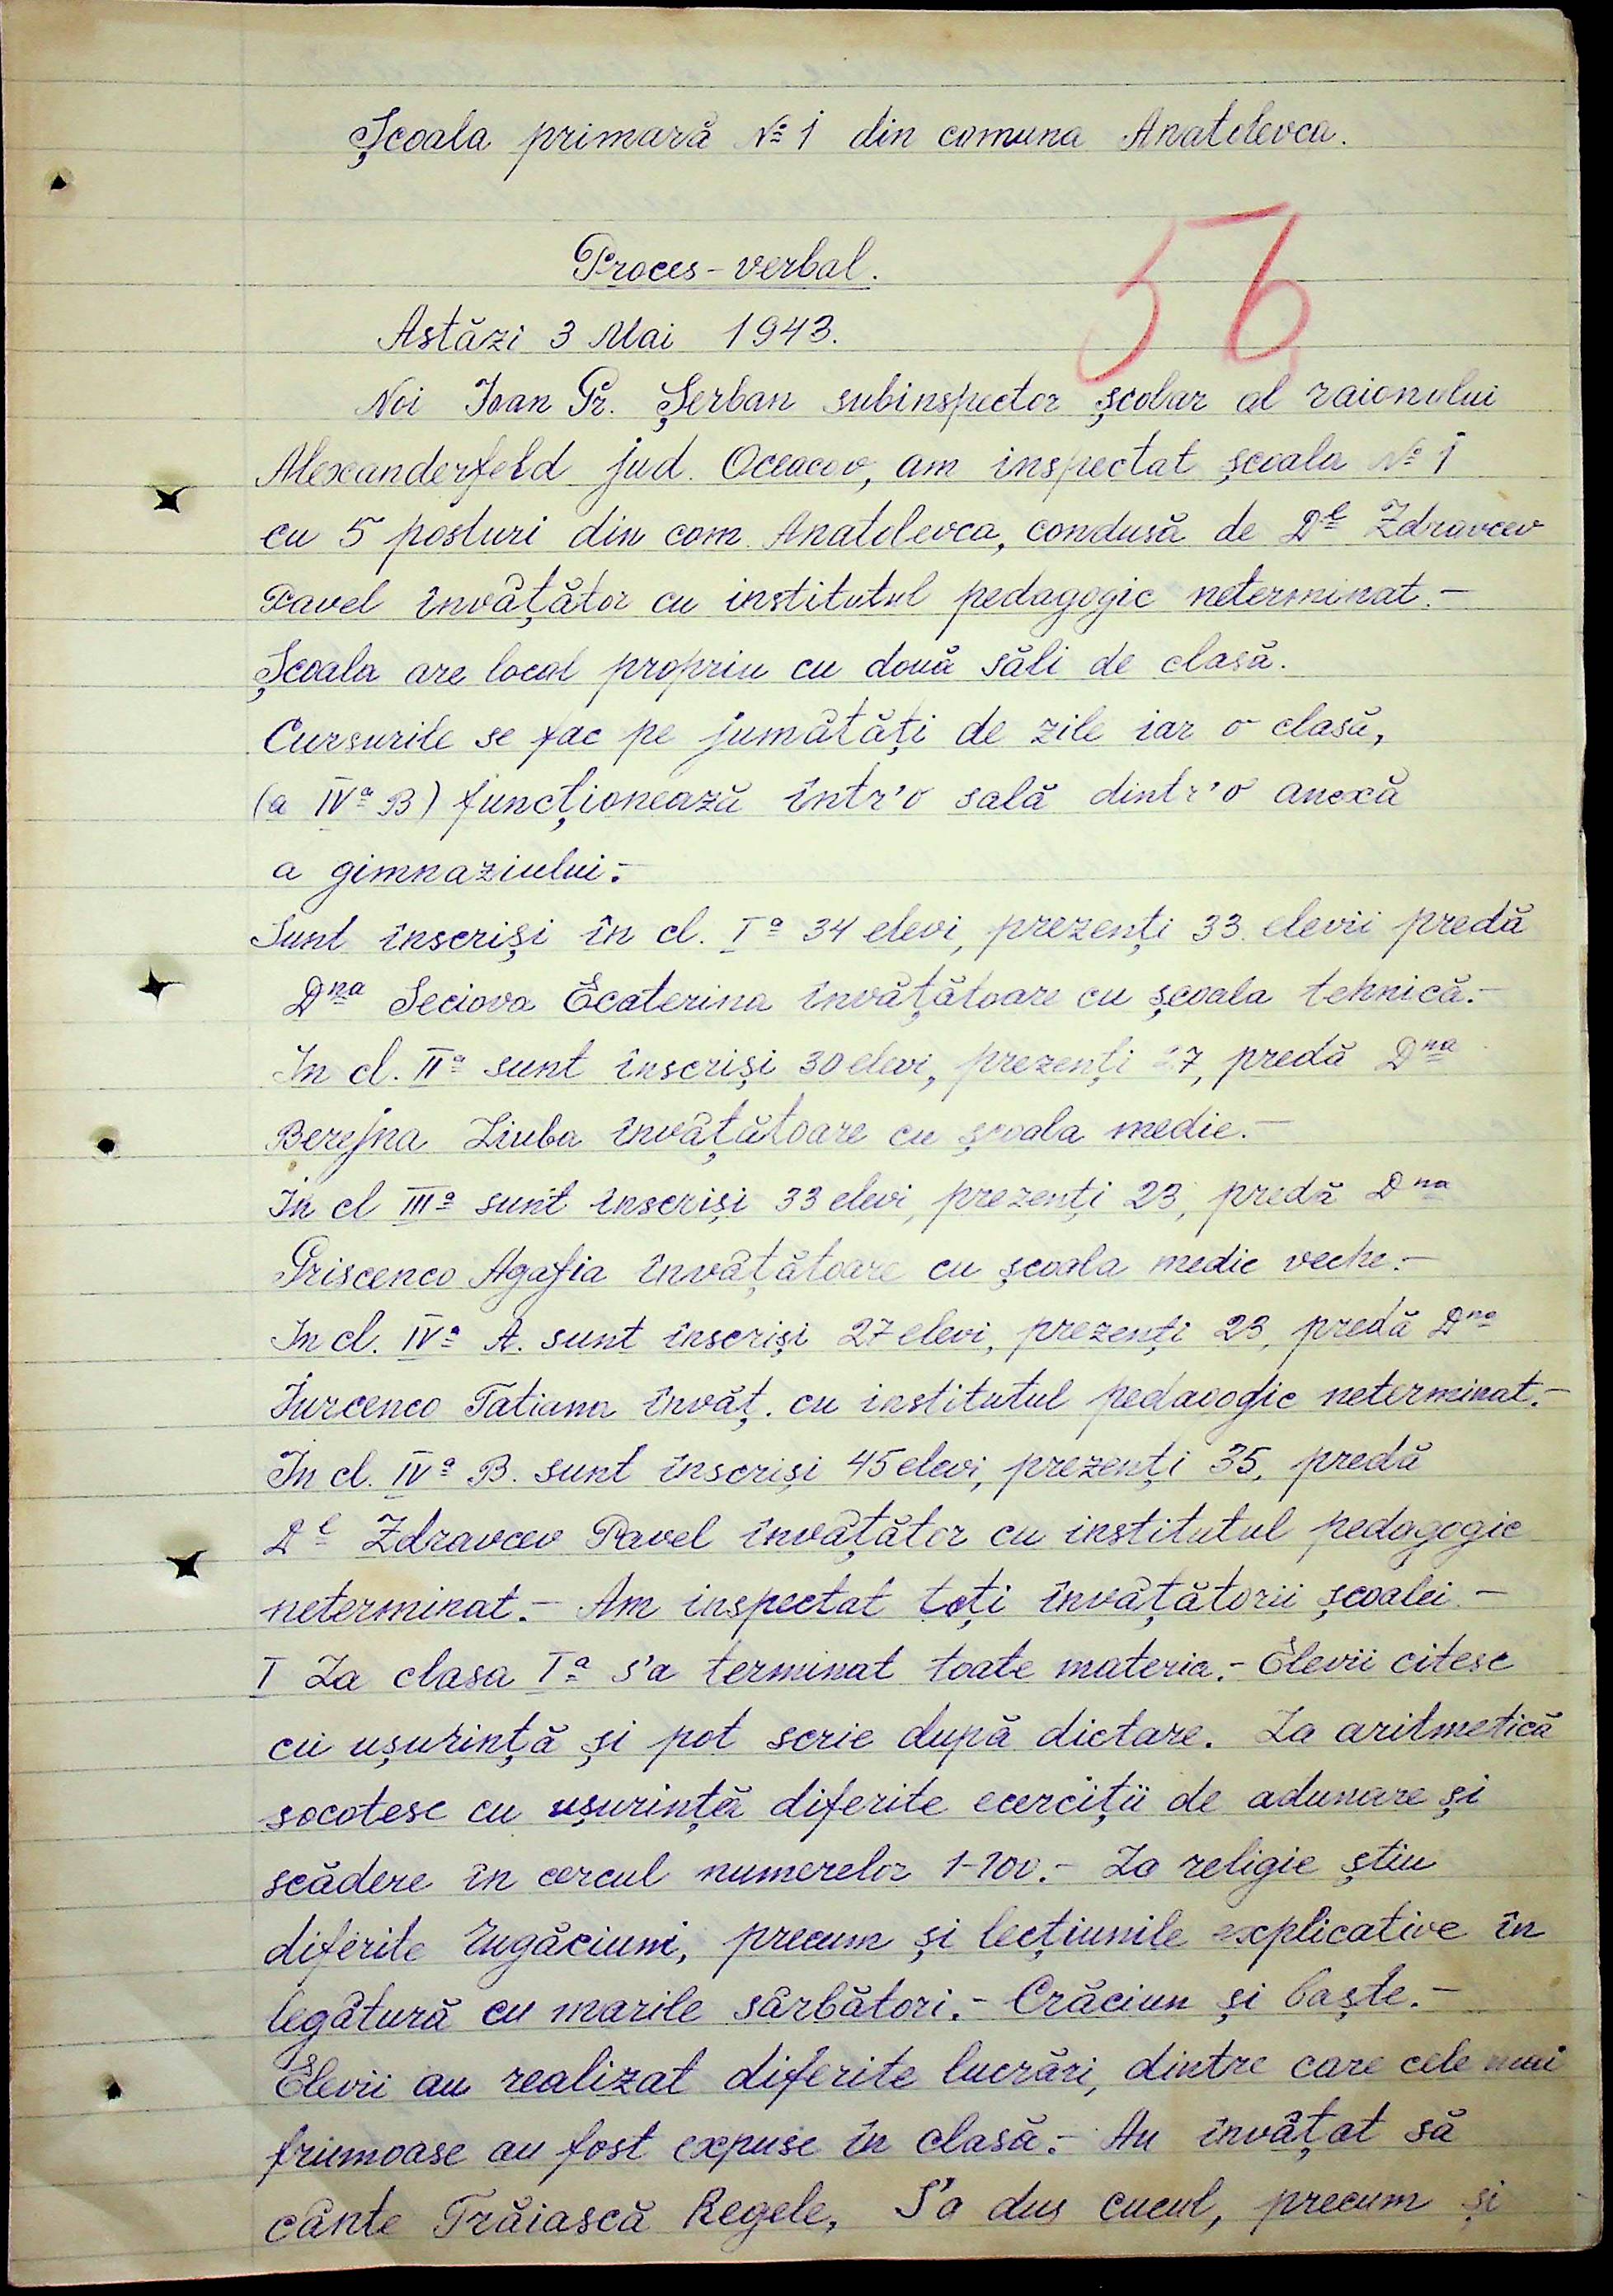 Școala primară № 1 din comuna Anatolevca.
56
Proces-verbal.
Astăzi 3 Mai 1943.
Noi Ioan Gr. Șerban subinspector școlar al raionului
Alexanderfeld jud. Oceacov, am inspectat școala № 1
cu 5 posturi din com. Anatolevca, condusă de Dl Zdravcev
Pavel învâțător cu institutul pedagogic neterminat.-
Școala are local propriu cu două săli de clasă.
Cursurile se fac pe jumâtăți de zile iar o clasă,
(a IVa B) funcționează într'o sală dintr'o anexă
a gimnaziului.-
Sunt înscriși în cl. Ia 34 elevi, prezenți 33 elevii predă
Dna Seciova Ecaterina învâțătoare cu școala tehnică.-
In cl. IIa sunt înscriși 30 elevi, prezenți 27, predă Dna
Berejna Liuba învâțătoare cu școala medie.-
In cl IIIa sunt înscriși 33 elevi, prezenți 23, predă Dna
Griscenco Agafia învâțătoare cu școala medie veche.-
In cl. IVa A. sunt înscriși 27 elevi, prezenți 23, predă Dna
Iurcenco Tatiana învăț. cu institutul pedagogic neterminat.-
In cl. IVa B. sunt înscriși 45 elevi, prezenți 35, predă
Dl Zdravcev Pavel învâțător cu institutul pedagogic
neterminat.- Am inspectat toți învâțătorii școalei.-
I La clasa Ia s'a terminat toate materia.- Elevii citesc
cu ușurință și pot scrie după dictare. La aritmetică
socotesc cu ușurință diferite ecerciții de adunare și
scădere în cercul numerelor 1-100.- La religie știu
diferite rugăciuni, precum și lecțiunile explicative în
legâtură cu marile sârbători.- Crăciun și Paște.-
Elevii au realizat diferite lucrări, dintre care cele mai
frumoase au fost expuse în clasă.- Au învâțat să
cânte Trăiască Regele, S'a dus cucul, precum și